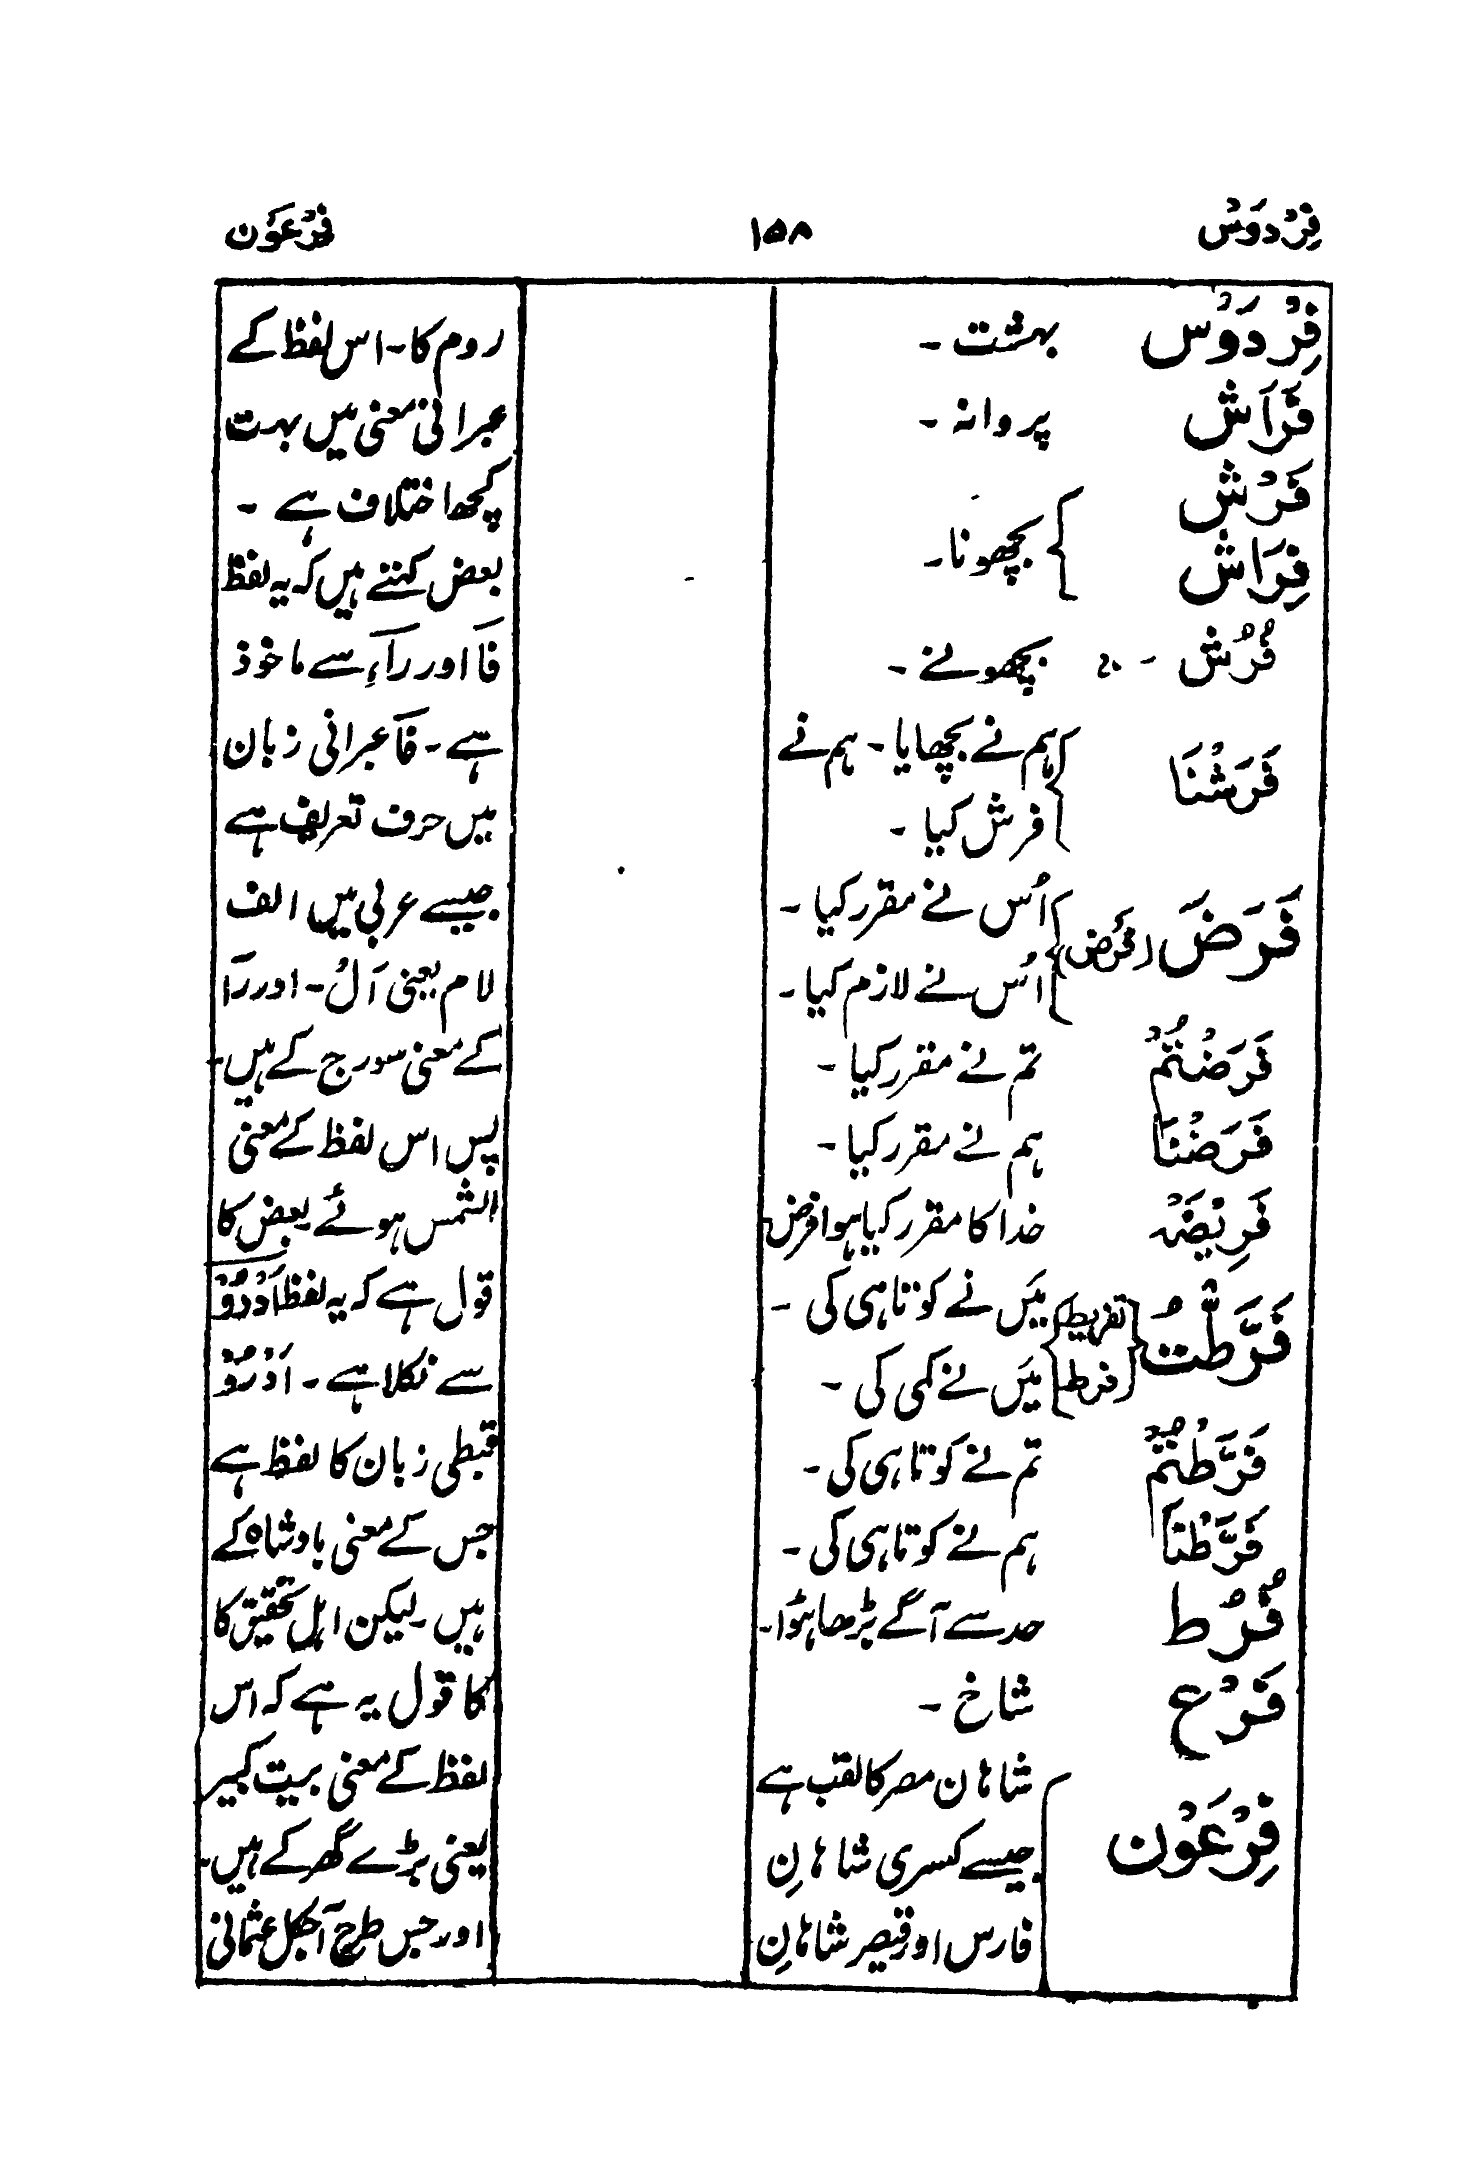 فِرْدَوْسْ ۱۵۸ فِرْعَوْن
فِرْدَوْس بہشت ۔
فَرَاش پروانہ ۔
فَرْش
فِرَاش } بچھونا۔
فُرُش ۔ بچھونے ۔
فَرَشْنَا { ہم نے بچھایا ۔ ہم نے
فرش کیا ۔
فَرَضَ (فَرْض) { اُس نے مقرر کیا ۔
اُس نے لازم کیا ۔
فَرَضْتُمْ تم نے مقرر کیا ۔
فَرَضْنَا ہم نے مقرر کیا ۔
فَرِيْضَۃ خدا کا مقرر کیا ہوا فرض
فَرَّطْتُ { تفریط { مَیں نے کوتاہی کی ۔
فرط } مَیں نے کمی کی ۔
فَرَّطْتُمْ تم نے کوتاہی کی ۔
فَرَّطْنَا ہم نے کوتاہی کی ۔
فُرُط حد سے آگے بڑھا ہؤا۔
فَرْع شاخ ۔
فِرْعَوْن { شاہان مصر کا لقب ہے
جیسے کسری شاہانِ
فارس اور قیصر شاہانِ
روم کا ۔ اس لفظ کے
عبرانی معنی میں بہت
کچھ اختلاف ہے ۔
بعض کہتے ہیں کہ یہ لفظ
فَا اور رَاَءِ سے ماخوذ
ہے ۔ فَا عبرانی زبان
میں حرف تعریف ہے
جیسے عربی میں الف
لام یعنی اَلْ ۔ اور رَا
کے معنی سورج کے ہیں ۔
پس اس لفظ کے معنی
الشمس ہوئے بعض کا
قول ہے کہ یہ لفظ اَدْرُوْ
سے نکلا ہے ۔ اَدْرُوْ
قبطی زبان کا لفظ ہے
جس کے معنی بادشاہ کے
ہیں ۔ لیکن اہل تحقیق کا
کا قول یہ ہے کہ اس
لفظ کے معنی بریت کبیر
یعنی بڑے گھر کے ہیں ۔
اور جس طرح آجکل عثمانی